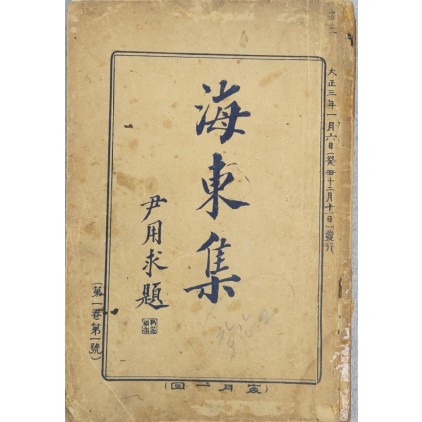 大正三年一月六日(癸丑十二月十一日)發行
海東集
尹用求題
(第一卷第一號)
(每月一回)